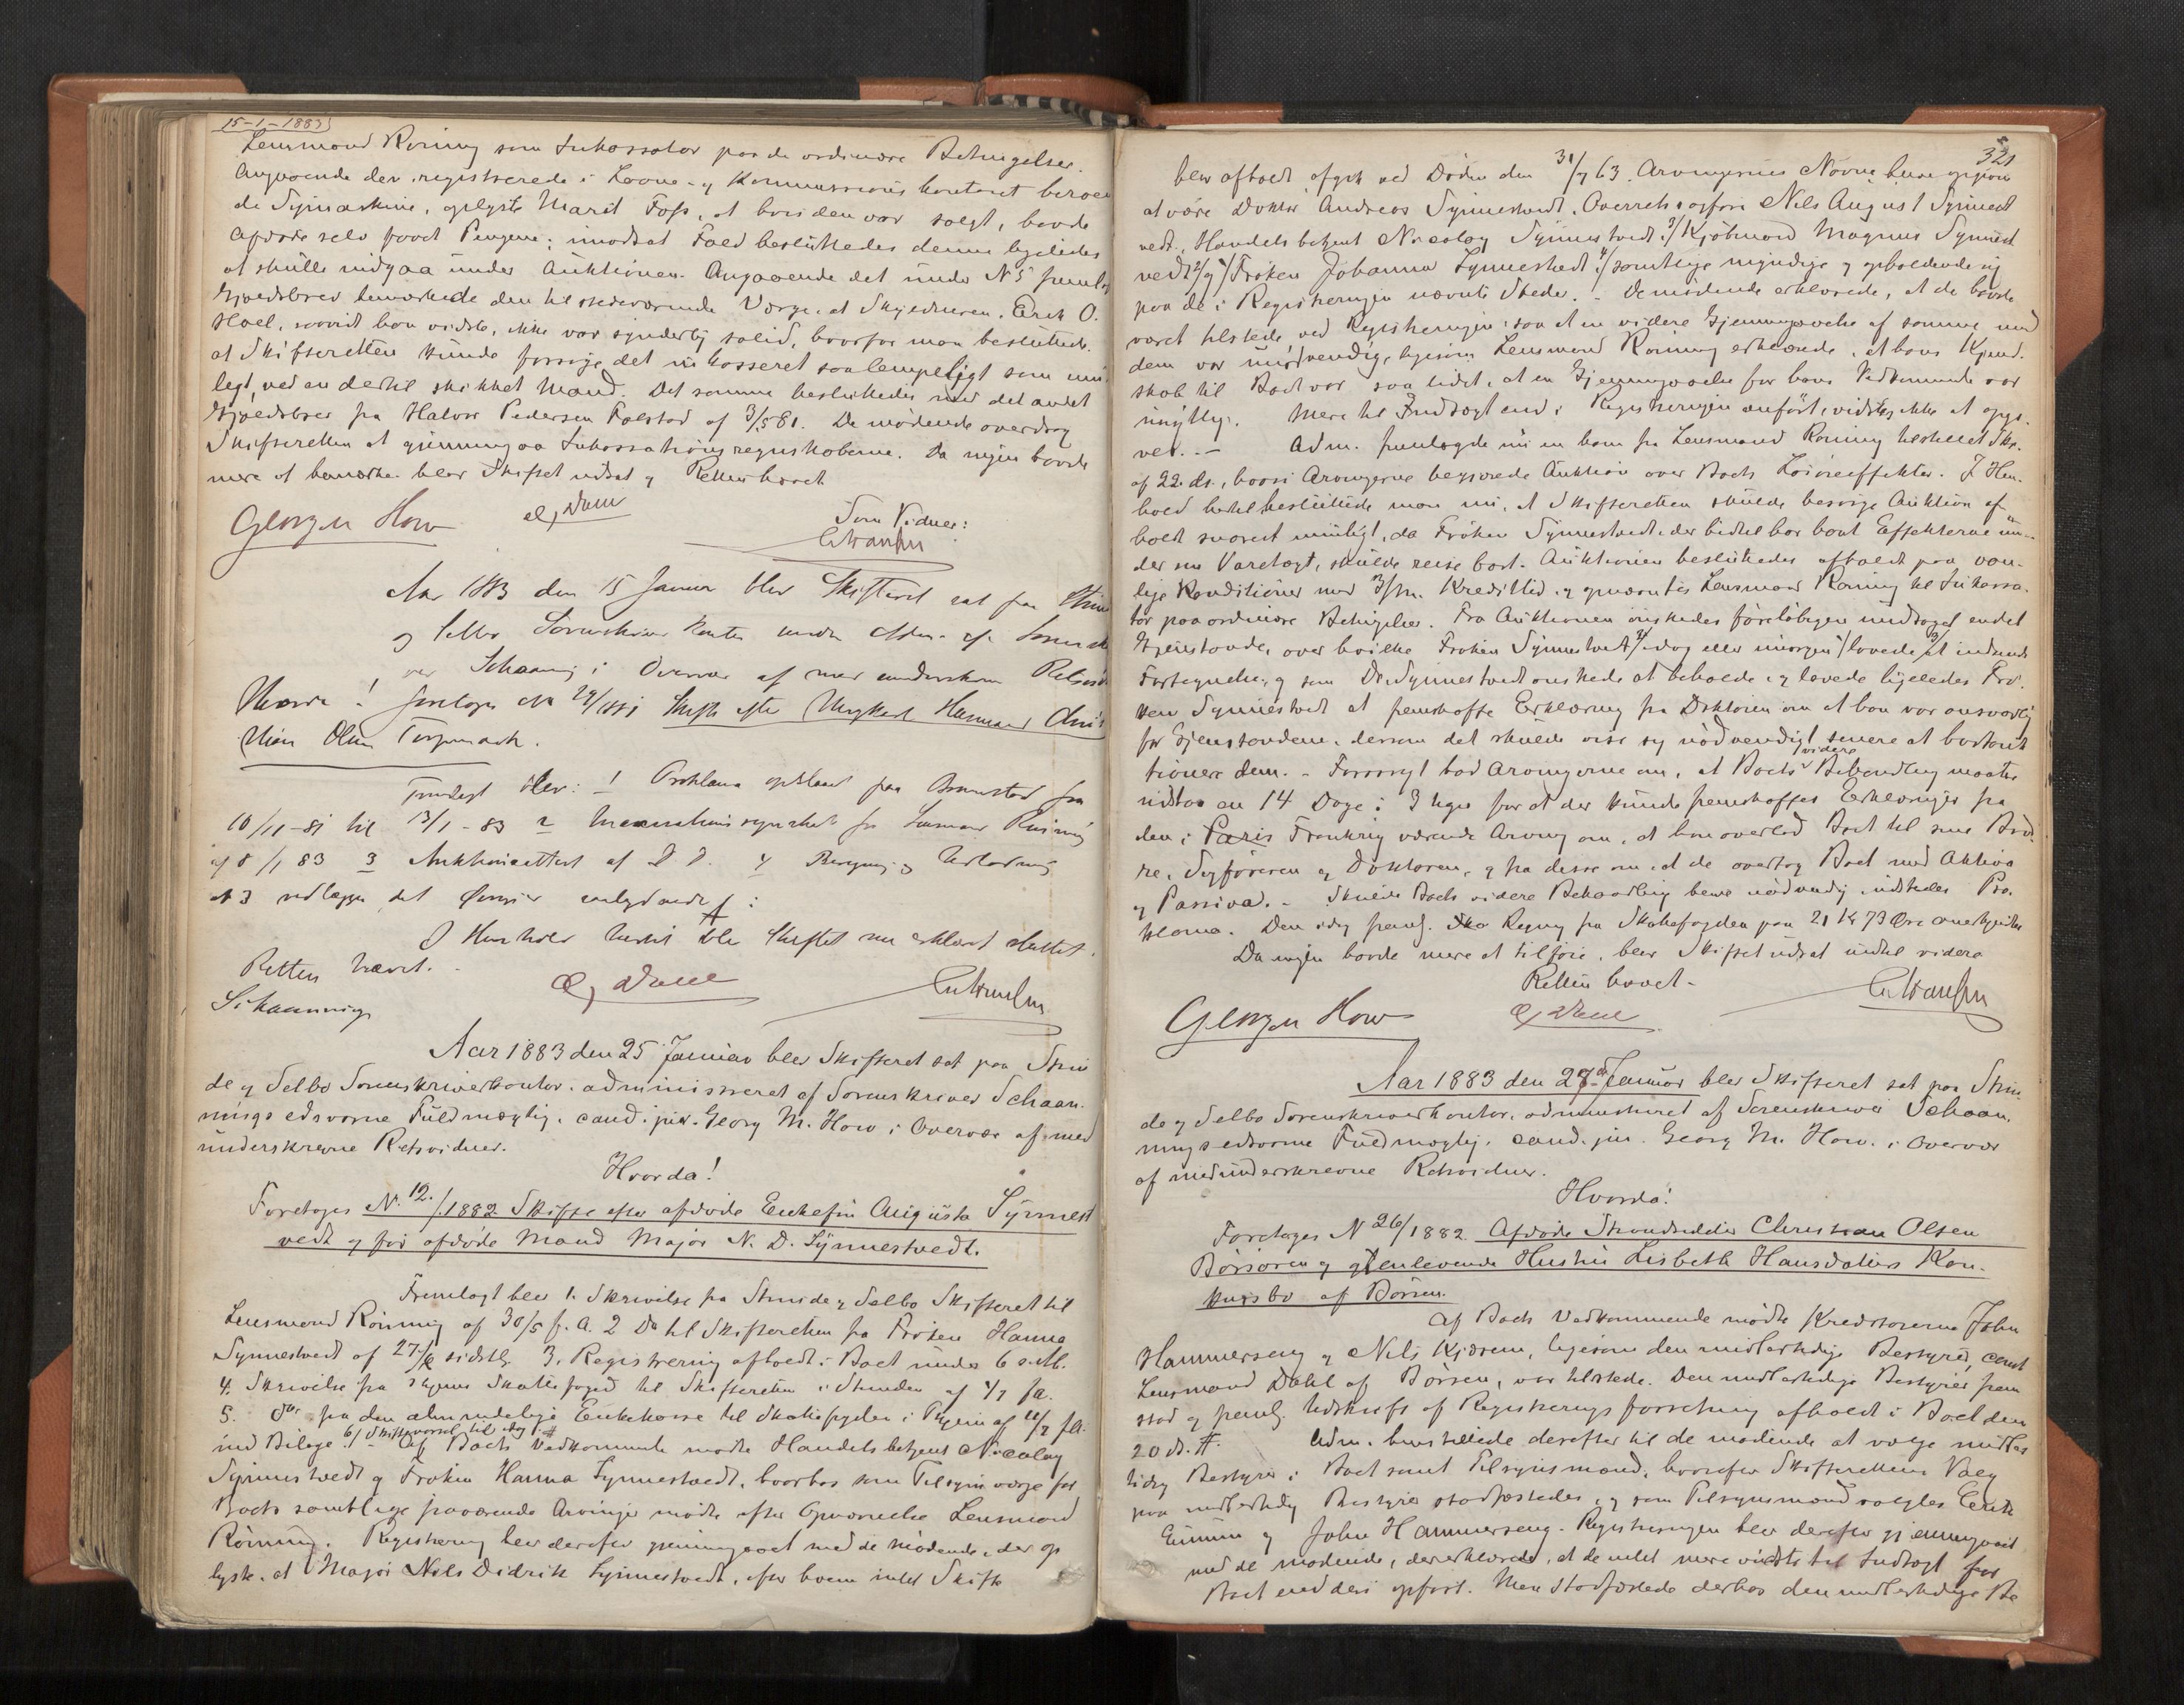 15-1-1883
Lensmand Röning som Inkassator paa de ordinære Betingelser.
Angaaende den registrerede i Laane- og Kommissions kontoret beroen
de Symaskine, oplyste Marit Foss, at hvis den var solgt, havde
Afdøde selv faaet Pengene; imodsat Fald besluttedes denne ligeledes
at skulle indgaa under Auktionen. Angaaende det under N 5 fremlag
Gjældsbrev bemærkede den tilstedeværende Værge, at Skyldneren, Erik O.
Hoel, saavidt han vidste, ikke var synderlig solid, hvorfor man besluttede
at Skifteretten kunde forsøge det inkasseret saa lempeligt som mu
ligt, ved en dertil skikket Mand. Det samme besluttedes med det andet
Gjældsbrev fra Halvor Pedersen Folstad af 3/5 81. De mødende overdrog
Skifteretten at gjennemgaa Inkassations regnskaberne. Da ingen havde
mere at bemærke blev Skiftet udsat og Retten hævet
Georg M How
Som Vidner:
Aar 1883 den 15 Januar blev Skifteret sat paa Strin
og Selbo Sorenskriver Kontor under Adm. af Sorenskri
ver Schaaning i Overvær af med underskrevne Retsvid
Hvorda! foretoges No 29/1881 Skifte efter Ungkarl Husmand Chris
tian Olsen
Fremlagt blev: 1 Proklama opslaaet paa fra
10/11-81 til 13/1-83 2 fra Lensmand Röning
af 8/1 83 3 Auktionsattest af D D. 4 Beregning og Udlodning
3 vedlægges det :
I Henhold hertil blev Skiftet nu erklæret sluttet.
Retten hævet.
Schaanning
Aar 1883 den 25 Januar blev Skifteret sat paa Strin
de og Selbo Sorenskriverkontor, administreret af Sorenskriver Schaan-
nings edsvorne Fuldmægtig, cand. jur. Georg M. How i Overvær af med
underskrevne Retsvidner.
Hvorda!
Foretoges N. 12./1882 Skifte efter afdøde Enkefru Augusta Synnest
vedt og før afdøde Mand Major N. D. Synnestvedt.
Fremlagt blev 1. Skrivelse fra Strinde og Selbo Skifteret til
Lensmand Röning af 30/5 f. A. 2 Do til Skifteretten fra Frøken Hanna
Synnestvedt af 27/ sidstl. 3. Registrering afholdt i Boet under 6 s. M.
4. Skrivelse fra Skattefoged til Skifteretten i Strinden af 1/7 f.A.
5. Do. fra den almindelige Enkekasse til Skattefogden i af f.A.
med Bilage. 6/ Skiftevarsel til
Af Boets Vedkommende mødte Handelsbetjent Nicolay
Synnestvedt og Frøken Hanna Synnestvedt, hvorhos som Tilsynsværge for
Boets samtlige fraværende Arvinger mødte efter Opnævnelse Lensmand
Röning. Registrering blev derefter gjennemgaaet med de mødende, der op
lyste, at Major Nils Didrik Synnestvedt, efter hvem intet Skifte
321
blev afholdt, afgik ved Døden den 31/7 63. Arvingernes Navne opgaves
at være Doktor Andreas Synnestvedt, Overretssagfører Nils August Synnest
vedt, Handelsbetjent Nicolay Synnestvedt, Kjøbmand Magnus Synnest
vedt, Frøken Johanna Synnestvedt, samtlige myndige og opholdende sig
paa de i Registreringen nævnte Steder. - De mødende erklærede, at de havde
været tilstede ved Registreringen, saa at en videre Gjennemgaaelse af samme med
dem var unødvendig, ligesom Lensmand Röning erklærede, at hans Kjend-
skab til Boet var saa lidet, at en Gjennemgaaelse for hans Vedkommende var
unyttig. Mere til Indtægt end i Registreringen anført, vidstes ikke at opgi-
ves. - Adm. fremlagde nu en ham fra Lensmand Röning tilstillet Skr.
af 22 ds., hvori Arvingerne begjærede Auktion over Boets Løsøreeffekter. I Hen-
hold hertil besluttede man nu, at Skifteretten skulde besørge Auktion af
holdt snarest muligt, da Frøken Synnestvedt, der hidtil har havt Effekterne un-
der sin Varetægt, skulde reise bort. Auktionen besluttedes afholdt paa van-
lige Konditioner med 3/m. Kredittid, og opnævntes Lensmand Röning til Inkassa-
tor paa ordinære Betingelser. Fra Auktionen ønskedes foreløbigen undtaget endel
Gjenstande, over hvilke Frøken Synnestvedt idag eller imorgen lovede at indsende
Fortegnelse, og som Dr. Synnestvedt ønskede at beholde, og lovede ligeledes Frø-
ken Synnestvedt at fremskaffe Erklæring fra Doktoren om at han var ansvarlig
for Gjenstandene, dersom det skulde vise sig nødvendigt senere at bortauk
tionere dem. - Forøvrigt bad Arvingerne om, at Boets videre Behandling maatte
udstaa en 14 Dage à 3 Uger for at der kunde fremskaffes Erklæringer fra
den i Paris Frankrig værende Arving om, at han overlod Boet til sine Brød-
re, Sagføreren og Doktoren, og fra disse om, at de overtog Boet med Aktiva
og Passiva. - Skulde Boets videre Behandling blive nødvendig, udstedes Pro-
klama. Den idag freml. Regning fra Skattefogden paa 21 Kr 73 Øre anerkjendtes
Da ingen havde mere at tilføie, blev Skiftet udsat indtil videre
Retten hævet -
Georg M How
Aar 1883 den 27de Januar blev Skifteret sat paa Strin
de og Selbo Sorenskriverkontor, administreret af Sorenskriver Schaan-
nings edsvorne Fuldmægtig, cand. jur. Georg M. How, i Overvær
af medunderskrevne Retsvidner.
Hvorda!
Foretoges N 26/1882. Afdøde Strandsidder Christian Olsen
Börsören og gjenlevende Hustru Lisbeth Hansdatters Kon-
kursbo af Börsen.
Af Boets Vedkommende mødte Kreditorerne John
Hammerseng og Nils Kjörem, ligesom den midlertidige Bestyrer, const
Lensmand Dahl af Börsen, var tilstede. Den midlertidige Bestyrer frem
stod og freml. Udskrift af Registreringsforretning afholdt i Boet den
20 ds. #. Adm. henstillede derefter til de mødende at vælge midler
tidig Bestyrer i Boet samt Tilsynsmænd, hvorefter Skifterettens Valg
paa midlertidig Bestyrer stadfæstedes, og som Tilsynsmænd valgtes Erik
og John Hammerseng. Registreringen blev derefter gjennemgaaet
med de mødende, der erklærede, at de intet mere vidste til Indtægt for
Boet end deri opført. Man stadfæstede derhos den midlertidige Be